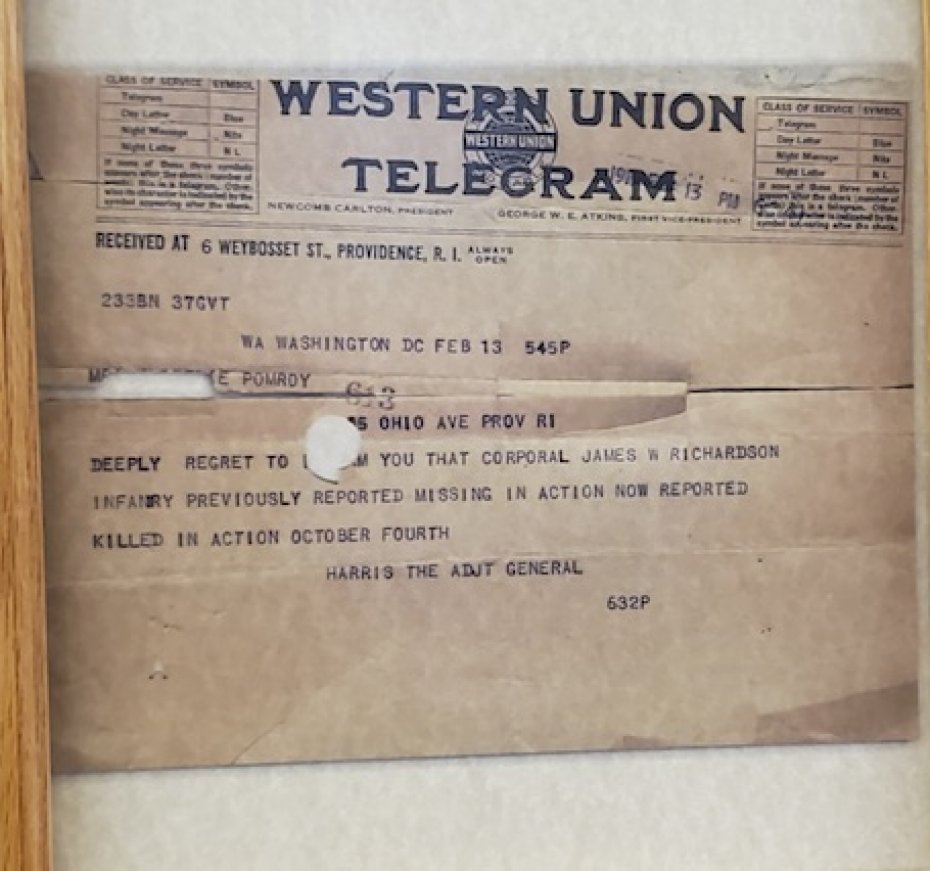 CLASS OF SERVICE SYMBOL
Telegram
Day Letter Blue
Night Message Nite
Night Letter N L
If none of these three symbols
appears after the check (number of
words) this is a telegram. Other-
wise its character is indicated by the
symbol appearing after the check.
WESTERN UNION
WESTERN UNION
TELEGRAM
NEWCOMB CARLTON, PRESIDENT
GEORGE W. E. ATKINS, FIRST VICE-PRESIDENT
13 PM
CLASS OF SERVICE SYMBOL
Telegram
Day Letter Blue
Night Message Nite
Night Letter N L
If none of these three symbols
appears after the check (number of
words) this is a telegram. Other-
wise its character is indicated by the
symbol appearing after the check.
RECEIVED AT 6 WEYBOSSET ST., PROVIDENCE, R. I. ALWAYS OPEN
233BN 37GVT
WA WASHINGTON DC FEB 13 545P
POMROY
613
OHIO AVE PROV RI
DEEPLY REGRET TO YOU THAT CORPORAL JAMES W RICHARDSON
INFANRY PREVIOUSLY REPORTED MISSING IN ACTION NOW REPORTED
KILLED IN ACTION OCTOBER FOURTH
HARRIS THE ADJT GENERAL
632P